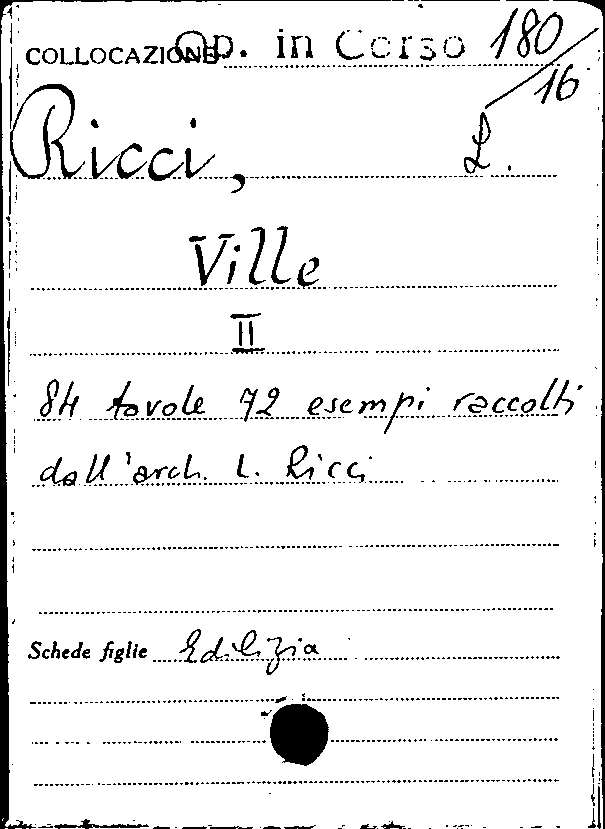 COLLOCAZIONE Op. in Corso 180/16
Ricci, L.
Ville
II
84 tavole 72 esempi raccolti
dall'arch. L. Ricci
Schede figlie Edilizia